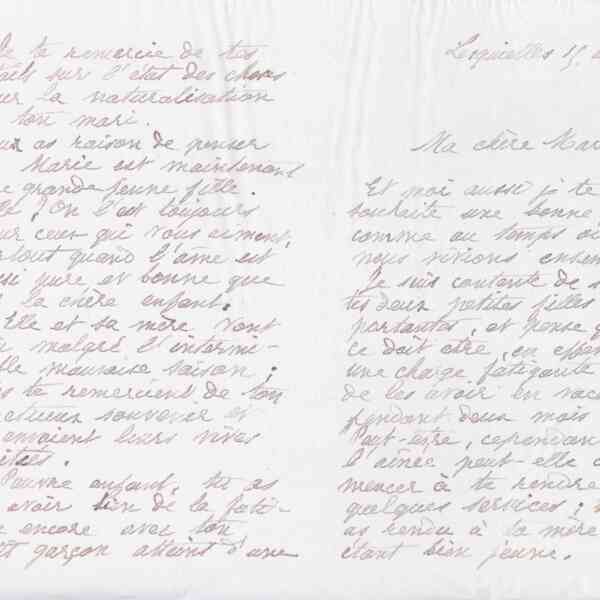 te remercie de tes
sur l'état des choses
la naturalisation
ton mari.
as raison de penser
Marie est maintenant
grande jeune fille.
? On l'est toujours
ceux qui vous aiment,
quand l'âme est
pure et bonne que
la chère enfant.
Elle et sa mère vont
malgré l'intermi-
mauvaise saison;
te remercient de ton
souvenir et
envoient leurs vives
Pauvre enfant, tu as
avoir bien de la fati-
encore avec ton
garçon atteint d'une
Lesquielles 15
Ma chère Mar
Et moi aussi je te
souhaite une bonne
comme au temps où
nous vivions ensem
Je suis contente de s
tes deux petites filles
portantes, et pense q
ce doit être, en effet
une charge fatigante
de les avoir en vaca
pendant deux mois
Peut-être, cependan
l'aînée peut-elle c
mencer à te rendre
quelques services;
as rendu à ta mère
étant bien jeune.